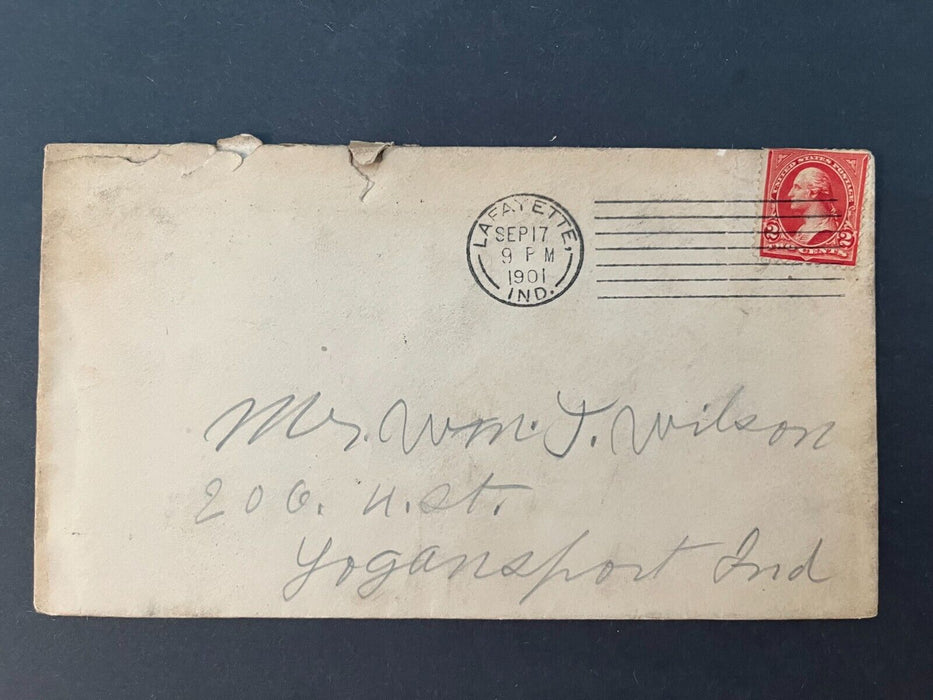 LAFAYETTE,
SEP 17
9 PM
1901
IND.
UNITED STATES POSTAGE
2 2
CENTS
Mr. Wm. T. Wilson
206. H. St.
Logansport Ind